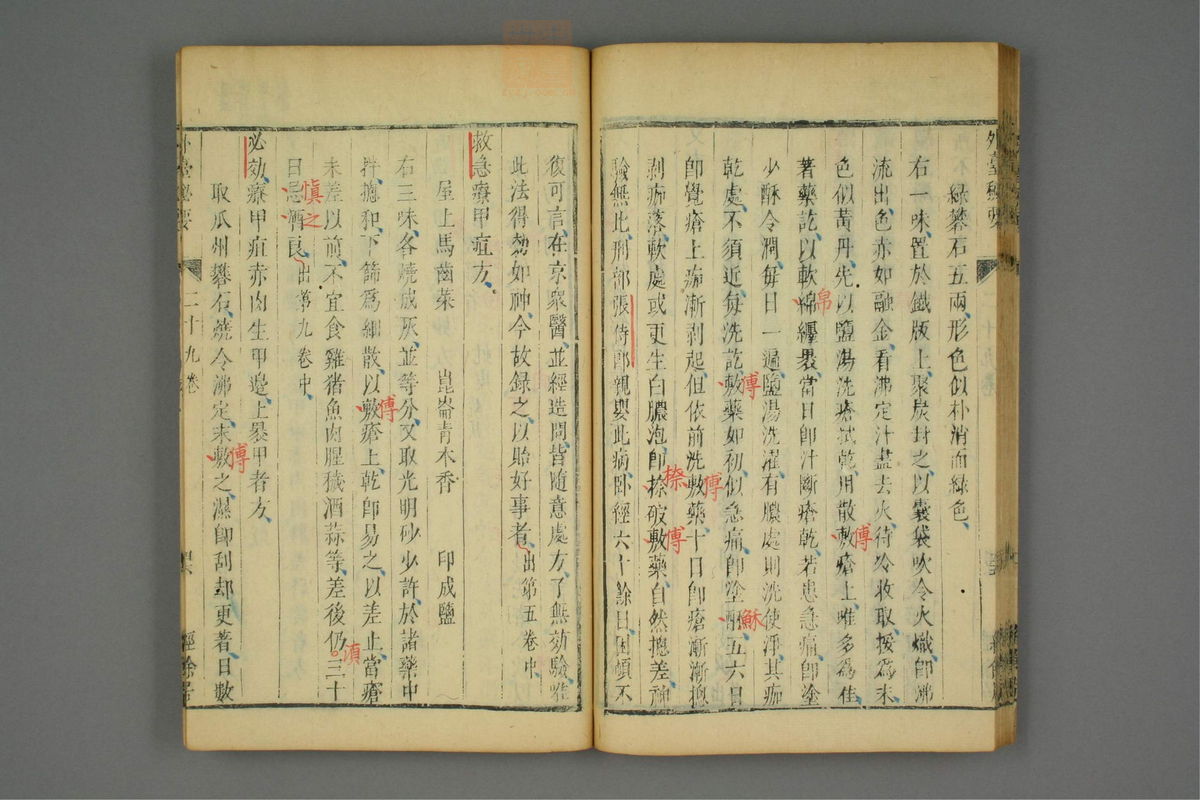 綠礬石五兩、形色似朴消而綠色、
右一味、置於鐵版上、聚炭封之、以囊袋吹令火熾、即沸
流出、色赤如融金、看沸定汁盡、去火、待冷收取、挼為末、
色似黃丹、先以鹽湯洗瘡拭乾、用散敷瘡上、唯多為佳、
傅
著藥訖、以軟綿纏裹、當日即汁斷瘡乾、若患急痛、即塗
帛
少酥令潤、每日一遍鹽湯洗濯、有膿處則洗使淨、其痂
乾處、不須近、每洗訖敷藥如初、似急痛、即塗酥、五六日
傅
穌
即覺瘡上痂漸剥起、但依前洗敷藥、十日即瘡漸漸總
傅
剥痂落、軟處或更生白膿泡、即搽破敷藥、自然總差、神
搽
傅
驗無比、刑部張侍郎親嬰此病、臥經六十餘日、困頓不
復可言、在京衆醫、並經造問、皆隨意處方、了無効驗、唯
此法得効如神、今故録之、以貽好事者、出第五卷中、
救急療甲疽方、
屋上馬齒菜 崑崙青木香 印成鹽
右三味、各燒成灰、並等分、又取光明砂少許、於諸藥中
拌摠和、下篩為細散、以敷瘡上、乾即易之、以差止、當瘡
傅
未差以前、不宜食雞猪魚肉腥穢酒蒜等、差後仍三十
須
日忌酒良、出第九卷中、
慎之
必効療甲疽赤肉生甲邊、上裹甲者方、
取瓜州礬石、燒令沸定、末敷之、濕即刮却更著、日數
傅
外臺秘要
二十九卷